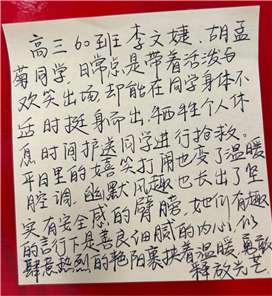 高三60班李文婕、胡孟
菊同学 日常总是带着活泼与
欢笑出场 却能在同学身体不
适时挺身而出，牺牲个人休
息时间护送同学进行抢救。
平日里的嬉笑打闹也变了温暖
腔调，幽默风趣也长出了坚
实有安全感的臂膀，她们有趣
的言行下是善良细腻的内心，似
肆意热烈的艳阳裹挟着温暖勇敢
释放光芒